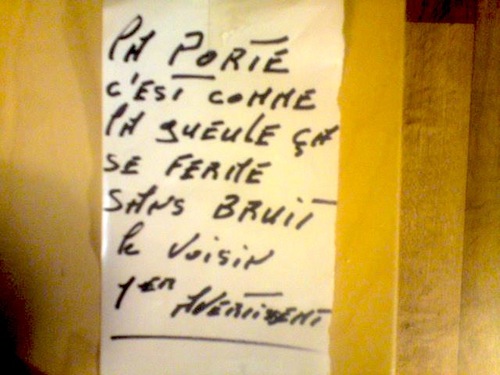 LA PORTE
C'EST COMME
LA GUEULE ÇA
SE FERME
SANS BRUIT
le Voisin
1ER AVERTISSEMENT